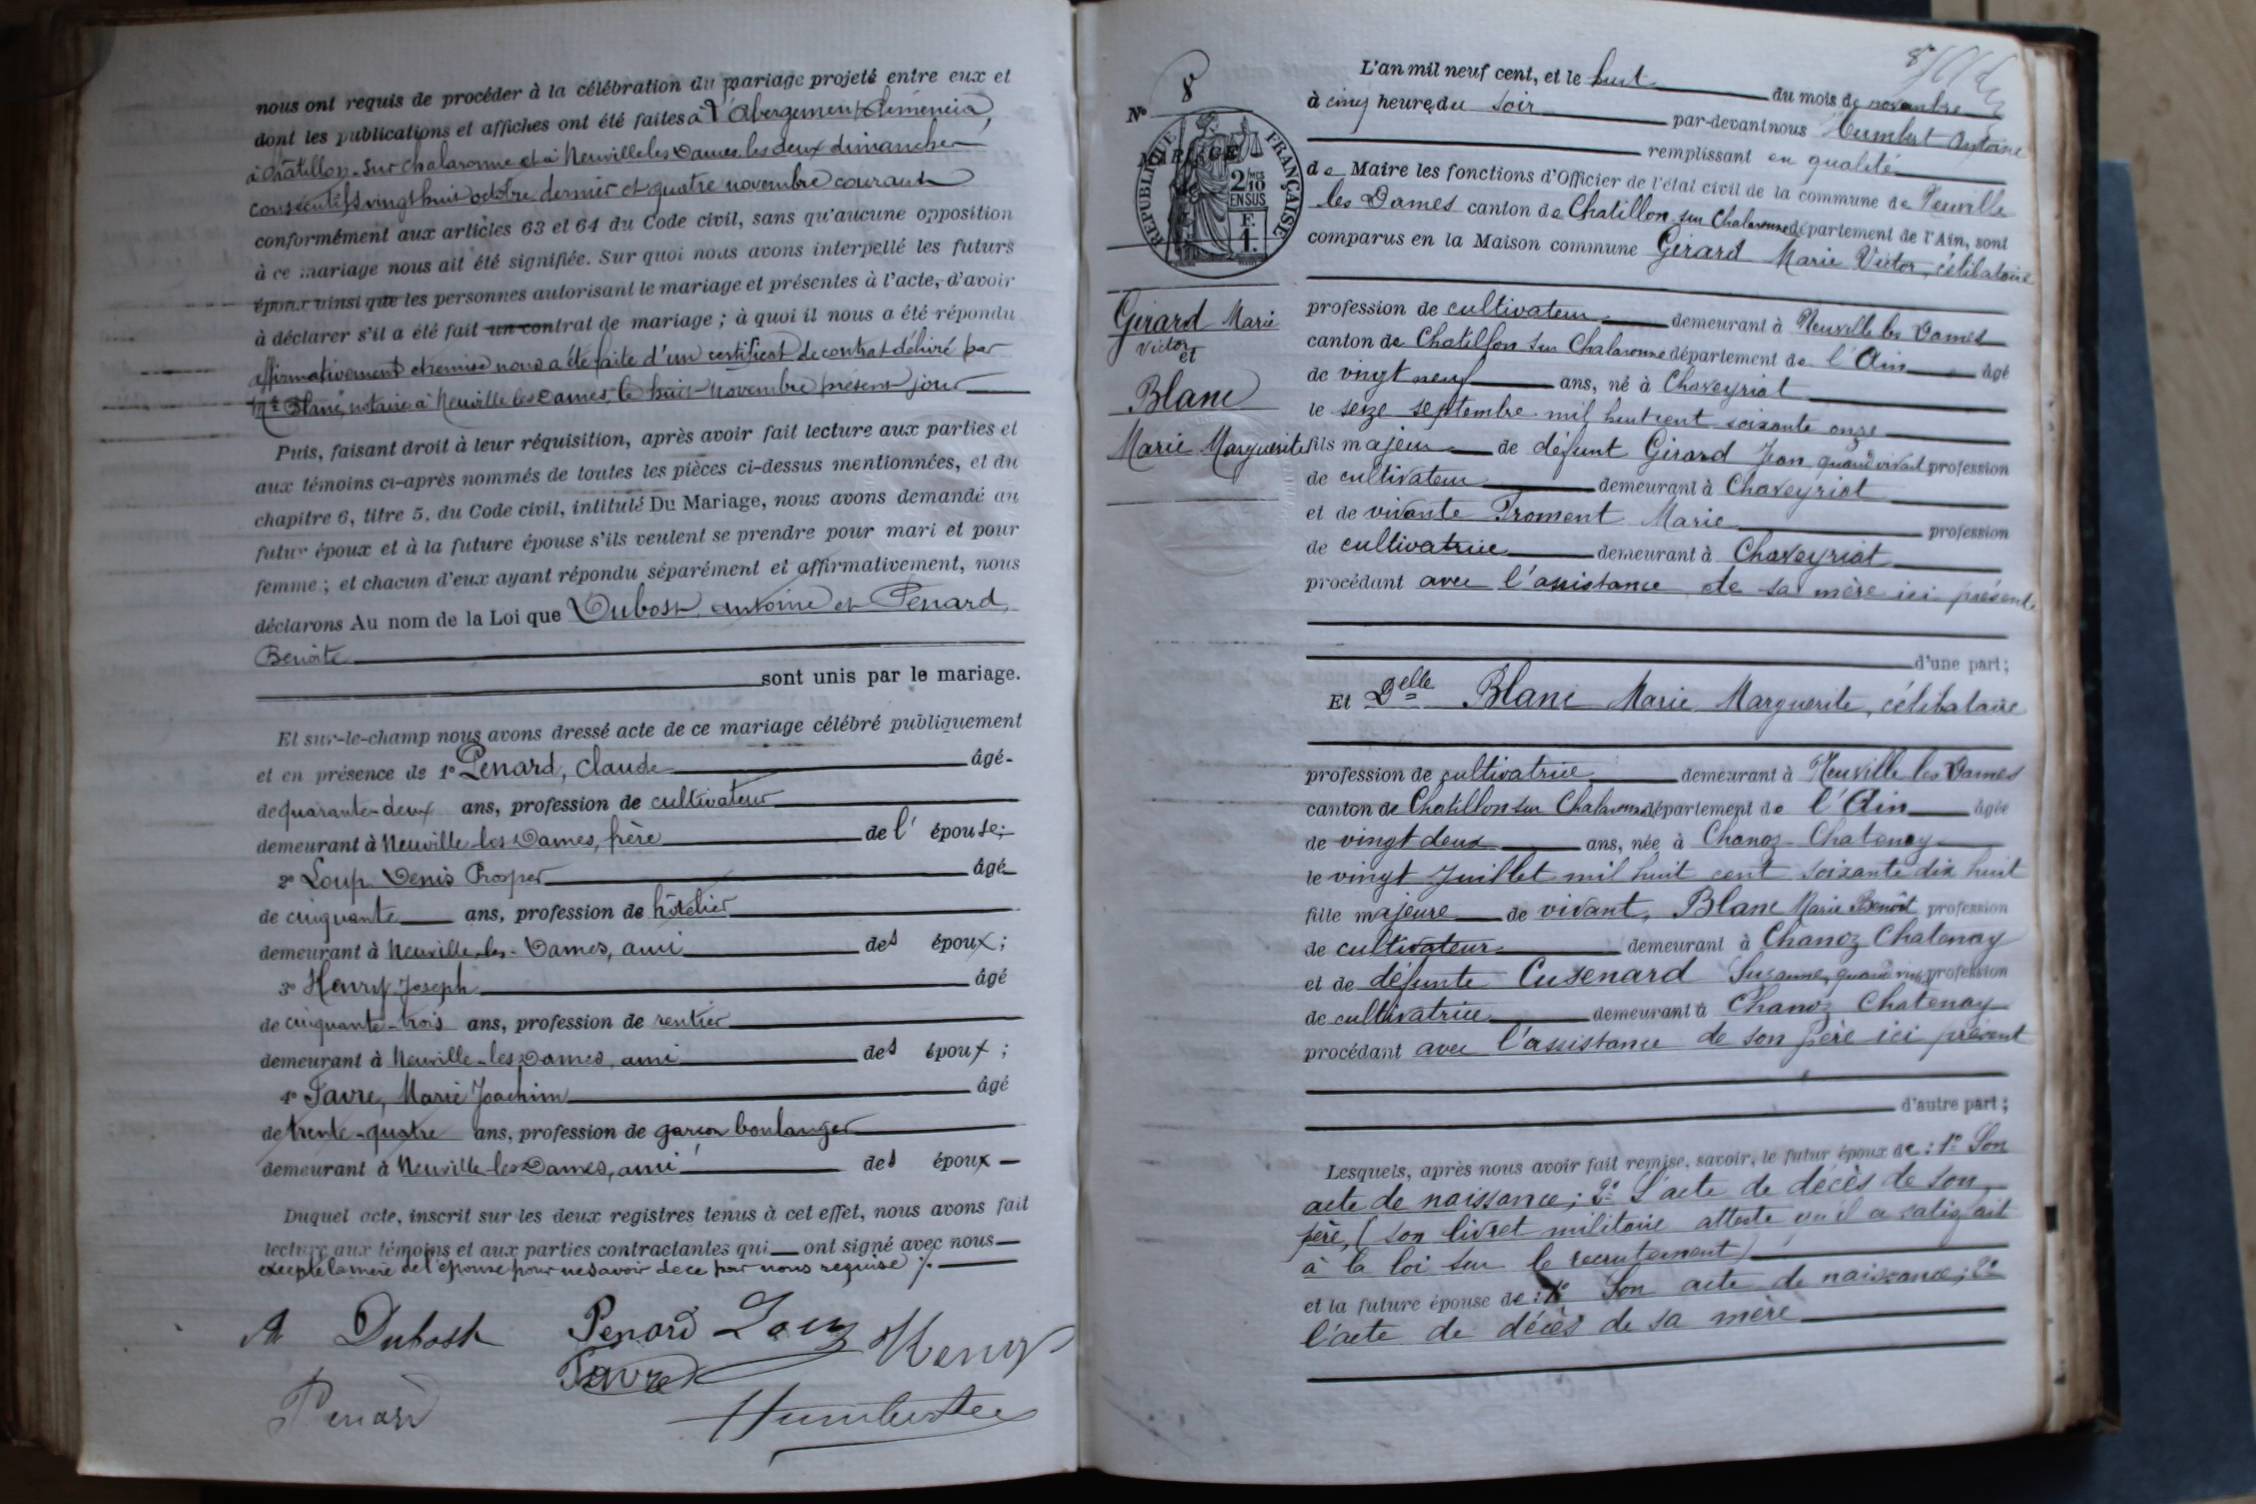 nous ont requis de procéder à la célébration du mariage projeté entre eux et
dont les publications et affiches ont été faites à l'Abergement Clémencia,
à Châtillon-sur-Chalaronne et à Neuville les Dames, les deux dimanches
consécutifs vingt huit octobre dernier et quatre novembre courant
conformément aux articles 63 et 64 du Code civil, sans qu'aucune opposition
à ce mariage nous ait été signifiée. Sur quoi nous avons interpellé les futurs
époux ainsi que les personnes autorisant le mariage et présentes à l'acte, d'avoir
à déclarer s'il a été fait un contrat de mariage ; à quoi il nous a été répondu
affirmativement et remise nous a été faite d'un certificat de contrat délivré par
Mt Blanc, notaire à Neuville les Dames, le huit novembre présent jour
Puis, faisant droit à leur réquisition, après avoir fait lecture aux parties et
aux témoins ci-après nommés de toutes les pièces ci-dessus mentionnées, et du
chapitre 6, titre 5, du Code civil, intitulé Du Mariage, nous avons demandé au
futur époux et à la future épouse s'ils veulent se prendre pour mari et pour
femme ; et chacun d'eux ayant répondu séparément et affirmativement, nous
déclarons Au nom de la Loi que Dubost, Antoine et Penard,
Benoîte
sont unis par le mariage.
Et sur-le-champ nous avons dressé acte de ce mariage célébré publiquement
et en présence de 1° Penard, Claude âgé
de quarante-deux ans, profession de cultivateur
demeurant à Neuville-les-Dames, frère de l' épouse ;
2° Loup Denis Prosper âgé
de cinquante ans, profession de hôtelier
demeurant à Neuville-les-Dames, ami des époux ;
3° Henry Joseph âgé
de cinquante-trois ans, profession de rentier
demeurant à Neuville-les-Dames, ami des époux ;
4° Favre, Marie Joachim âgé
de trente-quatre ans, profession de garçon boulanger
demeurant à Neuville-les-Dames, ami des époux
Duquel acte, inscrit sur les deux registres tenus à cet effet, nous avons fait
lecture aux témoins et aux parties contractantes qui ont signé avec nous
excepté la mère de l'épouse pour ne savoir de ce par nous requise ./.
A Dubost Penard Loup Henry
Favre
Penard Humbert
N° 8
MARIAGE
RÉPUBLIQUE FRANÇAISE
2/10 EN SUS
F. 1.
Girard Marie
Victor
et
Blanc
Marie Marguerite
8
L'an mil neuf cent, et le huit du mois de novembre
à cinq heures du soir par-devant nous Humbert Antoine
remplissant en qualité
de Maire les fonctions d'Officier de l'état civil de la commune de Neuville
les Dames canton de Chatillon sur Chalaronne département de l'Ain, sont
comparus en la Maison commune Girard Marie Victor, célibataire
profession de cultivateur demeurant à Neuville les Dames
canton de Chatillon sur Chalaronne département de l'Ain âgé
de vingt neuf ans, né à Chaveyriat
le seize septembre mil huit cent soixante onze
fils majeur de défunt Girard Jean, quand vivait profession
de cultivateur demeurant à Chaveyriat
et de vivante Froment Marie profession
de cultivatrice demeurant à Chaveyriat
procédant avec l'assistance de sa mère ici présente
d'une part ;
Et Delle Blanc Marie Marguerite, célibataire
profession de cultivatrice demeurant à Neuville les Dames
canton de Chatillon sur Chalaronne département de l'Ain âgée
de vingt deux ans, née à Chanoz-Chatenay
le vingt Juillet mil huit cent soixante dix huit
fille majeure de vivant, Blanc Marie Benoît profession
de cultivateur demeurant à Chanoz Chatenay
et de défunte Cusenard Suzanne, quand viv. profession
de cultivatrice demeurant à Chanoz Chatenay
procédant avec l'assistance de son père ici présent
d'autre part ;
Lesquels, après nous avoir fait remise, savoir, le futur époux de : 1° Son
acte de naissance ; 2° L'acte de décès de son
père, ( son livret militaire atteste qu'il a satisfait
à la loi sur le recrutement )
et la future épouse de : 1° Son acte de naissance ; 2°
l'acte de décès de sa mère